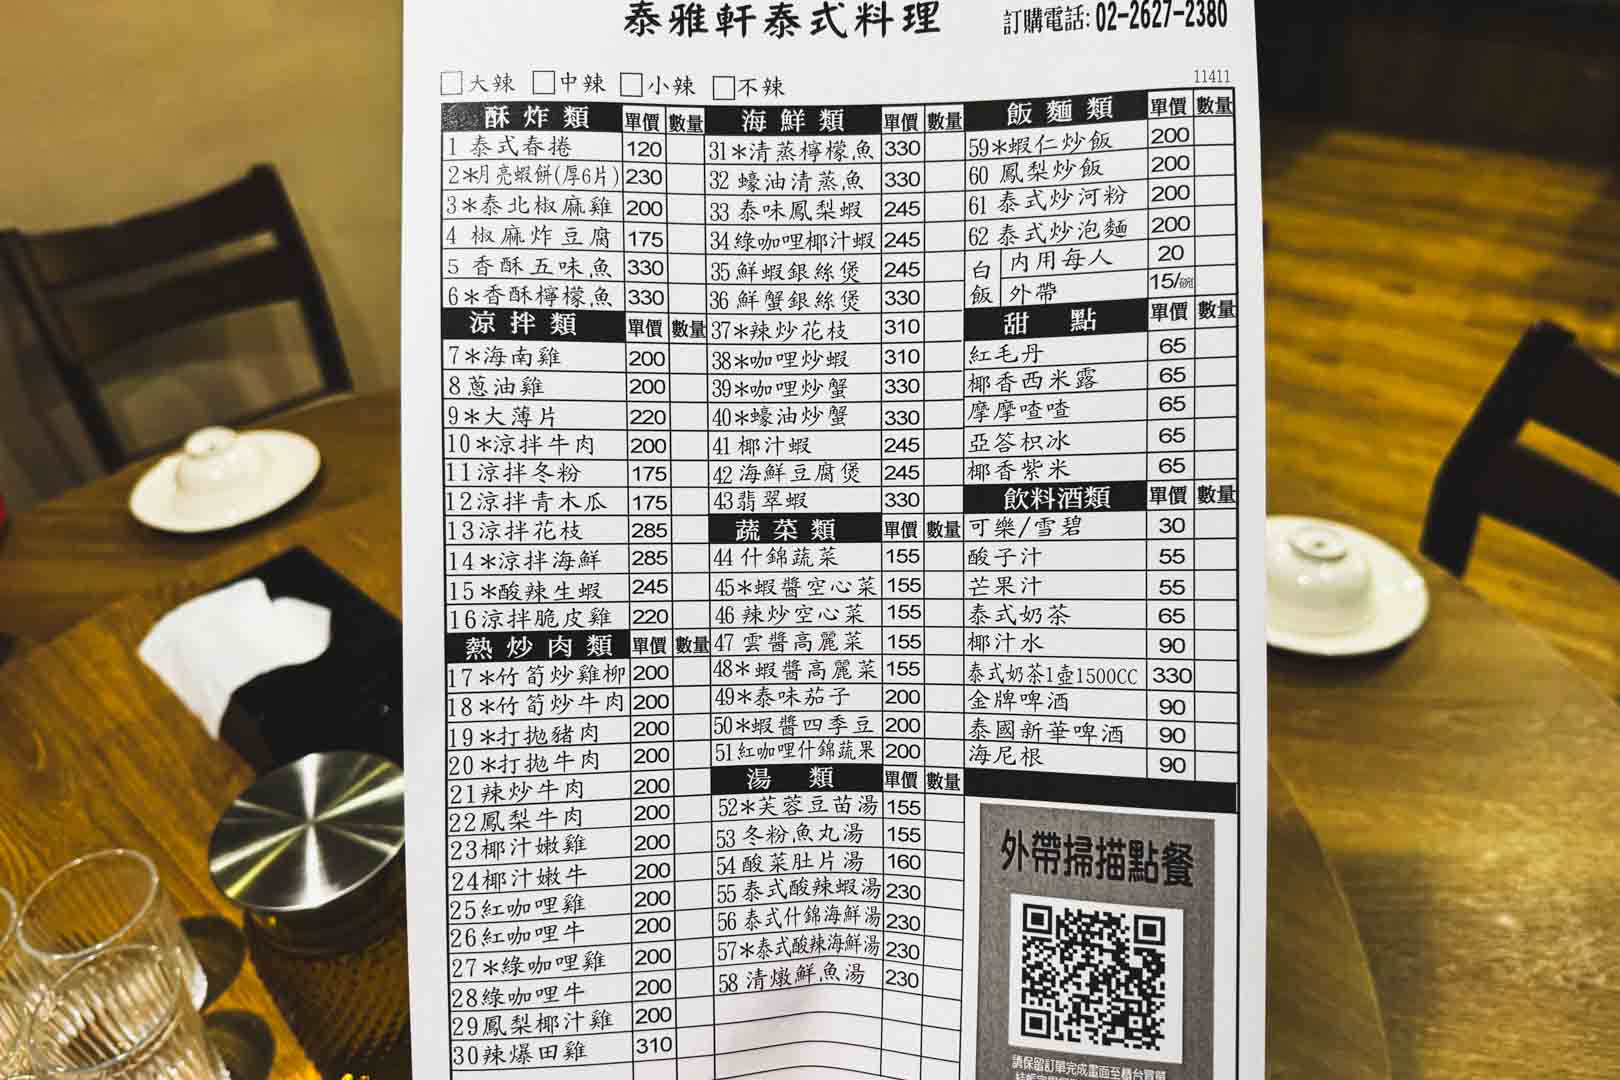 泰雅軒泰式料理
訂購電話: 02-2627-2380
□大辣 □中辣 □小辣 □不辣
11411
酥炸類 單價 數量
1 泰式春捲 120
2*月亮蝦餅(厚6片) 230
3*泰北椒麻雞 200
4 椒麻炸豆腐 175
5 香酥五味魚 330
6*香酥檸檬魚 330
涼拌類 單價 數量
7*海南雞 200
8蔥油雞 200
9*大薄片 220
10*涼拌牛肉 200
11涼拌冬粉 175
12涼拌青木瓜 175
13涼拌花枝 285
14*涼拌海鮮 285
15*酸辣生蝦 245
16涼拌脆皮雞 220
熱炒肉類 單價 數量
17*竹筍炒雞柳 200
18*竹筍炒牛肉 200
19*打拋豬肉 200
20*打拋牛肉 200
21辣炒牛肉 200
22鳳梨牛肉 200
23椰汁嫩雞 200
24椰汁嫩牛 200
25紅咖哩雞 200
26紅咖哩牛 200
27*綠咖哩雞 200
28綠咖哩牛 200
29鳳梨椰汁雞 200
30辣爆田雞 310
海鮮類 單價 數量
31*清蒸檸檬魚 330
32 蠔油清蒸魚 330
33 泰味鳳梨蝦 245
34綠咖哩椰汁蝦 245
35鮮蝦銀絲煲 245
36鮮蟹銀絲煲 330
37*辣炒花枝 310
38*咖哩炒蝦 310
39*咖哩炒蟹 330
40*蠔油炒蟹 330
41椰汁蝦 245
42海鮮豆腐煲 245
43翡翠蝦 330
蔬菜類 單價 數量
44什錦蔬菜 155
45*蝦醬空心菜 155
46 辣炒空心菜 155
47 雲醬高麗菜 155
48*蝦醬高麗菜 155
49*泰味茄子 200
50*蝦醬四季豆 200
51紅咖哩什錦蔬果 200
湯類 單價 數量
52*芙蓉豆苗湯 155
53 冬粉魚丸湯 155
54 酸菜肚片湯 160
55 泰式酸辣蝦湯 230
56 泰式什錦海鮮湯 230
57*泰式酸辣海鮮湯 230
58 清燉鮮魚湯 230
飯麵類 單價 數量
59*蝦仁炒飯 200
60 鳳梨炒飯 200
61 泰式炒河粉 200
62 泰式炒泡麵 200
白飯 內用每人 20
外帶 15/碗
甜點 單價 數量
紅毛丹 65
椰香西米露 65
摩摩喳喳 65
亞答枳冰 65
椰香紫米 65
飲料酒類 單價 數量
可樂/雪碧 30
酸子汁 55
芒果汁 55
泰式奶茶 65
椰汁水 90
泰式奶茶1壺1500CC 330
金牌啤酒 90
泰國新華啤酒 90
海尼根 90
外帶掃描點餐
請保留訂單完成畫面至櫃台買單